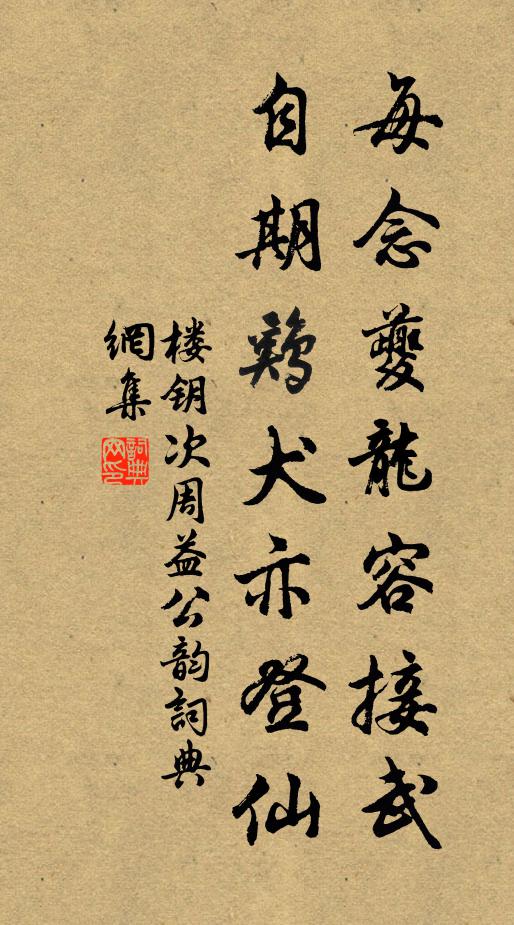 每念夔龍容接武
自期鷄犬亦登仙
楼钥次周益公韵詞典
網集
詞典
网印